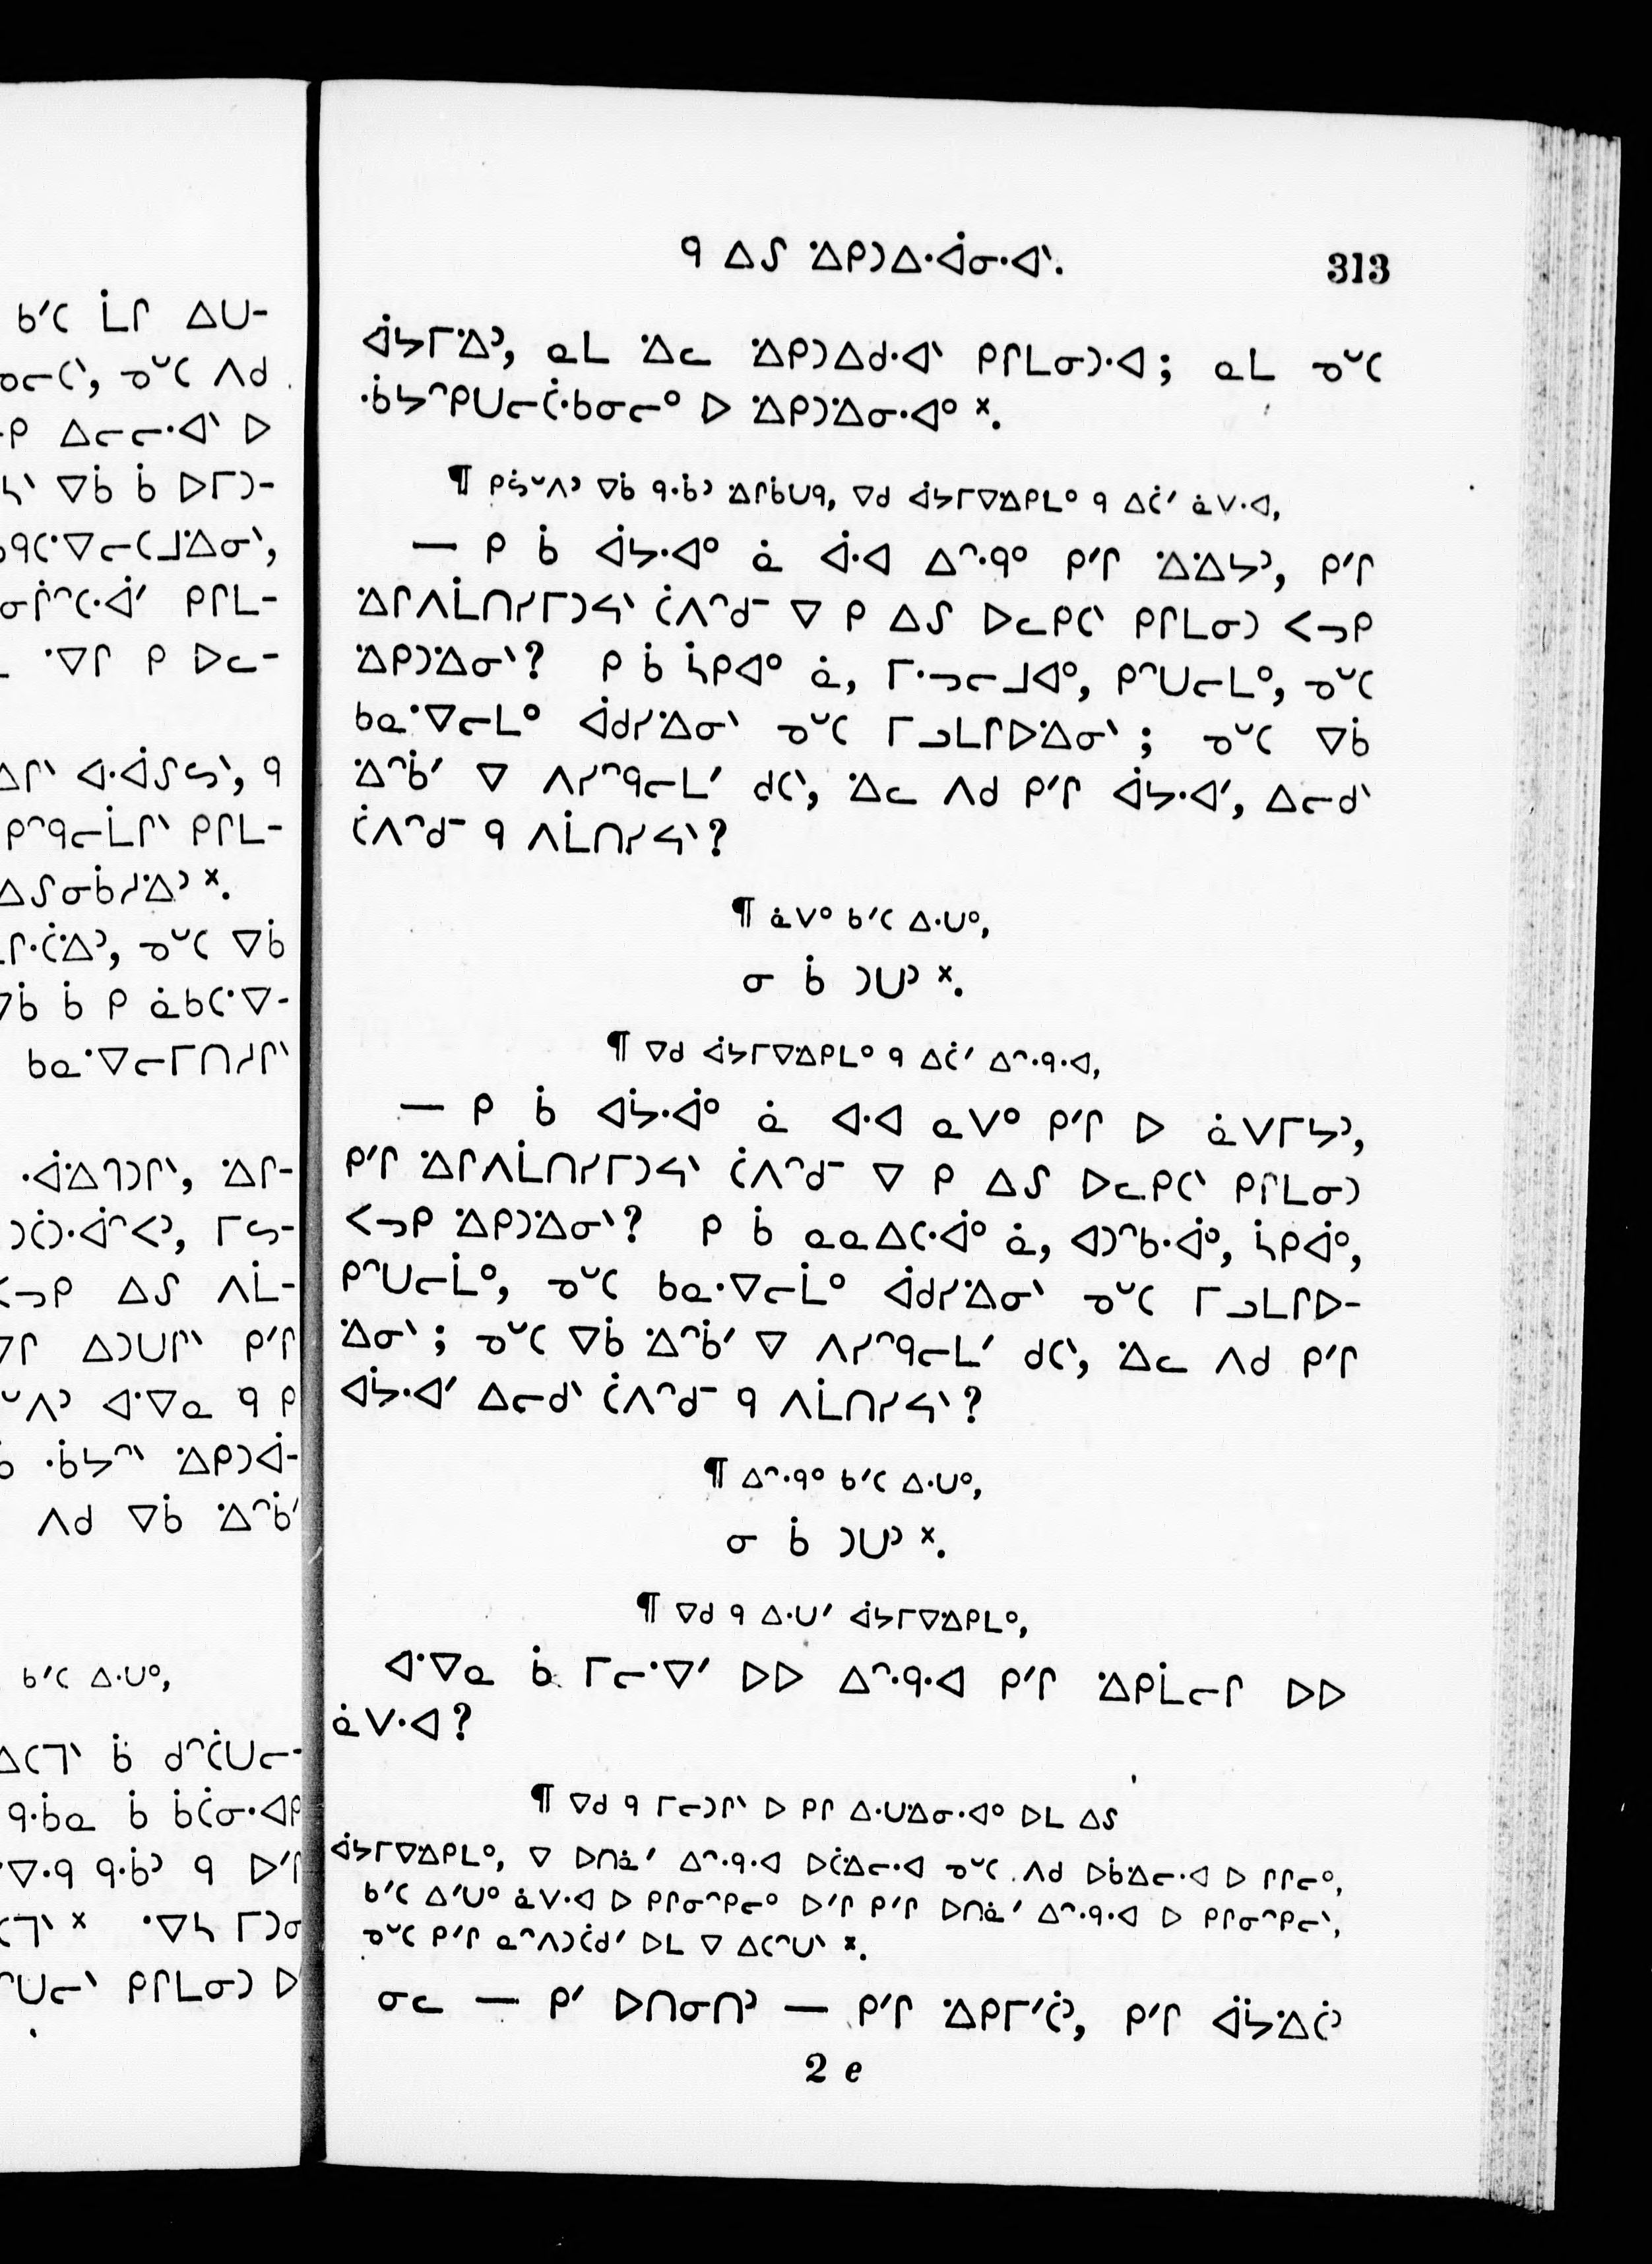 ᑫ ᐃᔑ ᐐᑭᑐᐃᐧᐋᓂᐧᐊᐠ. 313
ᐋᔭᒥᐐᐣ, ᓇᒪ ᐐᓚ ᐐᑭᑐᐃᑯᐧᐊᐠ ᑭᒋᒪᓂᑐᐧᐊ; ᓇᒪ ᓀᐢᑕ
ᐧᑳᔭᐢᑭᑌᓕᑖᐧᑲᓂᓕᐤ ᐅ ᐐᑭᑐᐐᓂᐧᐊᐤ ᙮
¶ ᑭᔖᐢᐱᐣ ᐁᑳ ᑫᐧᑳᐣ ᐐᒋᑳᑌᑫ, ᐁᑯ ᐋᔭᒥᐁᐐᑭᒪᐤ ᑫ ᐃᑖᐟ ᓈᐯᐧᐊ,
— ᑭ ᑳ ᐋᔭᐧᐊᐤ ᓈ ᐋᐧᐊ ᐃᐢᐧᑫᐤ ᑭᐟᒋ ᐐᐐᔭᐣ, ᑭᐟᒋ
ᐐᒋᐱᒫᑎᓯᒥᑐᔦᐠ ᑖᐱᐢᑰ ᐁ ᑭ ᐃᔑ ᐅᓚᑭᑕᐠ ᑭᒋᒪᓂᑐ ᐸᓕᑭ
ᐐᑭᑐᐐᓂᐠ? ᑭ ᑳ ᓵᑭᐊᐤ ᓈ, ᒥᐧᓓᓕᒧᐊᐤ, ᑭᐢᑌᓕᒪᐤ, ᓀᐢᑕ
ᑲᓇᐧᐁᓕᒪᐤ ᐋᑯᓯᐐᓂᐠ ᓀᐢᑕ ᒥᓗᒪᒋᐅᐐᓂᐠ; ᓀᐢᑕ ᐁᑳ
ᐐᐢᑳᐟ ᐁ ᐱᓯᐢᑫᓕᒪᐟ ᑯᑕᐠ, ᐐᓚ ᐱᑯ ᑭᐟᒋ ᐋᔭᐧᐊᐟ, ᐃᓕᑯᐠ
ᑖᐱᐢᑰ ᑫ ᐱᒫᑎᓯᔦᐠ?
¶ ᓈᐯᐤ ᑲᐟᑕ ᐃᐧᑌᐤ,
ᓂ ᑳ ᑐᑌᐣ ᙮
¶ ᐁᑯ ᐋᔭᒥᐁᐐᑭᒪᐤ ᑫ ᐃᑖᐟ ᐃᐢᐧᑫᐧᐊ,
— ᑭ ᑳ ᐊᔮᐧᐋᐤ ᓈ ᐊᐧᐊ ᓇᐯᐤ ᑭᐟᒋ ᐅ ᓈᐯᒥᔭᐣ,
ᑭᐟᒋ ᐐᒋᐱᒫᑎᓯᒥᑐᔦᐠ ᑖᐱᐢᑰ ᐁ ᑭ ᐃᔑ ᐅᓚᑭᑕᐠ ᑭᒋᒪᓂᑐ
ᐸᓕᑭ ᐐᑭᑐᐐᓂᐠ? ᑭ ᑳ ᓇᓇᐃᑕᐧᐋᐤ ᓈ, ᐊᑐᐢᑲᐧᐋᐤ, ᓵᑭᐋᐤ,
ᑭᐢᑌᓕᒫᐤ, ᓀᐢᑕ ᑲᓇᐧᐁᓕᒫᐤ ᐋᑯᓯᐐᓂᐠ ᓀᐢᑕ ᒥᓗᒪᒋᐅ-
ᐐᓂᐠ; ᓀᐢᑕ ᐁᑳ ᐐᐢᑳᐟ ᐁ ᐱᓯᐢᑫᓕᒪᐟ ᑯᑕᐠ, ᐐᓚ ᐱᑯ ᑭᐟᒋ
ᐊᔮᐧᐊᐟ ᐃᓕᑯᐠ ᑖᐱᐢᑰ ᑫ ᐱᒫᑎᓯᔦᐠ?
¶ ᐃᐢᐧᑫᐤ ᑲᐟᑕ ᐃᐧᑌᐤ,
ᓂ ᑳ ᑐᑌᐣ ᙮
¶ ᐁᑯ ᑫ ᐃᐧᑌᐟ ᐋᔭᒥᐁᐐᑭᒪᐤ,
ᐊᐧᐁᓇ ᑳ ᒥᓕᐧᐁᐟ ᐅᐅ ᐃᐢᐧᑫᐧᐊ ᑭᐟᒋ ᐐᑭᒫᓕᒋ ᐅᐅ
ᓈᐯᐧᐊ?
¶ ᐁᑯ ᑫ ᒥᓕᑐᒋᐠ ᐅ ᑭᒋ ᐃᐧᑌᐐᓂᐧᐊᐤ ᐅᒪ ᐃᔑ
ᐋᔭᒥᐁᐐᑭᒪᐤ, ᐁ ᐅᑎᓈᐟ ᐃᐢᐧᑫᐧᐊ ᐅᑖᐐᓕᐧᐊ ᓀᐢᑕ ᐱᑯ ᐅᑳᐐᓕᐧᐊ ᐅ ᒋᒋᓕᐤ,
ᑲᐟᑕ ᐃᐟᑌᐤ ᓈᐯᐧᐊ ᐅ ᑭᒋᓂᐢᑭᓕᐤ ᐅᐟᒋ ᑭᐟᒋ ᐅᑎᓈᐟ ᐃᐢᐧᑫᐧᐊ ᐅ ᑭᒋᓂᐢᑭᓕᐠ,
ᓀᐢᑕ ᑭᐟᒋ ᓇᐢᐱᑐᑖᑯᐟ ᐅᒪ ᐁ ᐃᑕᐢᑌᐠ ᙮
ᓂᓚ — ᑭᐟ ᐅᑎᓂᑎᐣ — ᑭᐟᒋ ᐐᑭᒥᐟᑖᐣ, ᑭᐟᒋ ᐋᔭᐐᑖᐣ
2 e